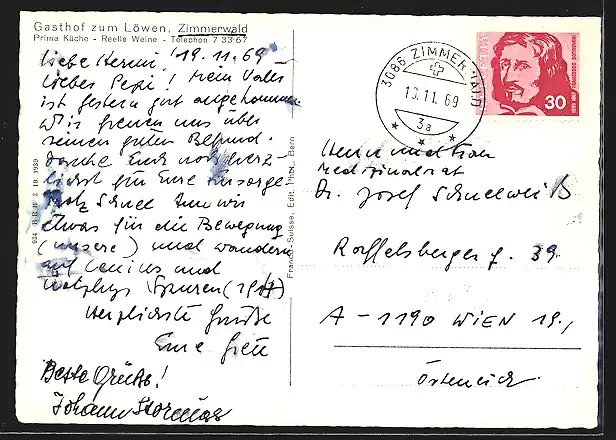 Gasthof zum Löwen, Zimmerwald
Prima Küche - Reelle Weine - Telephon 7 33 67
Liebe Hermi, 19.11.69
Lieber Pepi! Mein Vater
ist gestern gut angekommen.
Wir freuen uns über
seinen guten Befund.
danke Euch noch herz-
lichst für Eure Fürsorge
trotz Schnee tun wir
etwas für die Bewegung
(unsere) und wandern
auf Lenins und
Spuren (1917)
Herzlichste Grüße
Eure
Beste Grüße!
Johann
Franco-Suisse, Edit. Phot., Bern
3086 ZIMMERWALD
13.11.69
3a
HELVETIA
30
Herrn und Frau
Medizinalrat
Dr. Josef Schneeweiß
39
A-1190 WIEN 19.,
Österreich